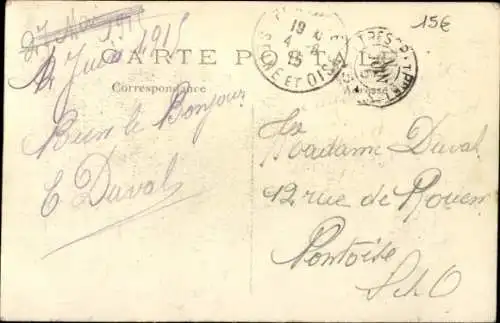 27 Mai 1915
15€
4 Juin 1915
CARTE POSTALE
Correspondance
Adresse
19
4 - 6
15
SEINE ET OISE
TRESOR ET POSTES
Bien le Bonjour
E Duval
Madame Duval
42 rue de Rouen
Pontoise
S et O